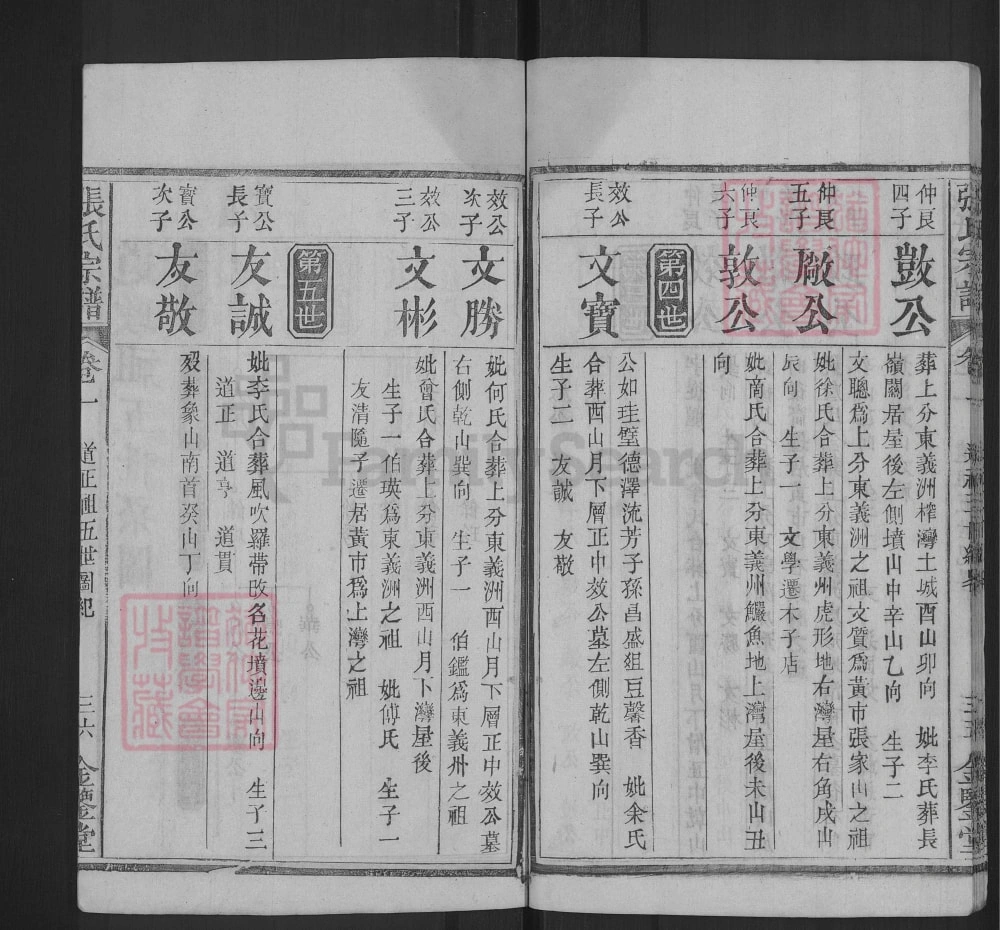 張氏宗譜
仲良
四子
鼓公
葬上分東義洲榨灣土城酉山卯向 妣李氏葬長
嶺關居屋後左側墳山申辛山乙向 生子二
文聰爲上分東義洲之祖文質爲黃市張家山之祖
仲良
五子
敞公
妣徐氏合葬上分東義州虎形地右灣屋右角戌山
辰向 生子一 文學遷木子店
仲良
六子
敦公
妣南氏合葬上分東義州鱺魚地上灣屋後未山丑
向
第四世
效公
長子
文寶
公如珪璧德澤流芳子孫昌盛俎豆馨香 妣余氏
合葬酉山月下層正中效公墓左側乾山巽向
生子二 友誠 友敬
效公
次子
文勝
妣何氏合葬上分東義洲西山月下層正中效公墓
右側乾山巽向 生子一 伯鑑爲東義州之祖
效公
三子
文彬
妣曾氏合葬上分東義洲西山月下灣屋後
生子一伯瑛爲東義洲之祖 妣傅氏 生子一
友清隨子遷居黃市爲上灣之祖
第五世
寶公
長子
友誠
妣李氏合葬風吹羅帶改名花墳邊山向 生子三
道正 道亨 道貫
寶公
次子
友敬
歿葬象山南首癸山丁向
張氏宗譜
卷一
道正祖五世圖紀
三六
金鑒堂
FamilySearch